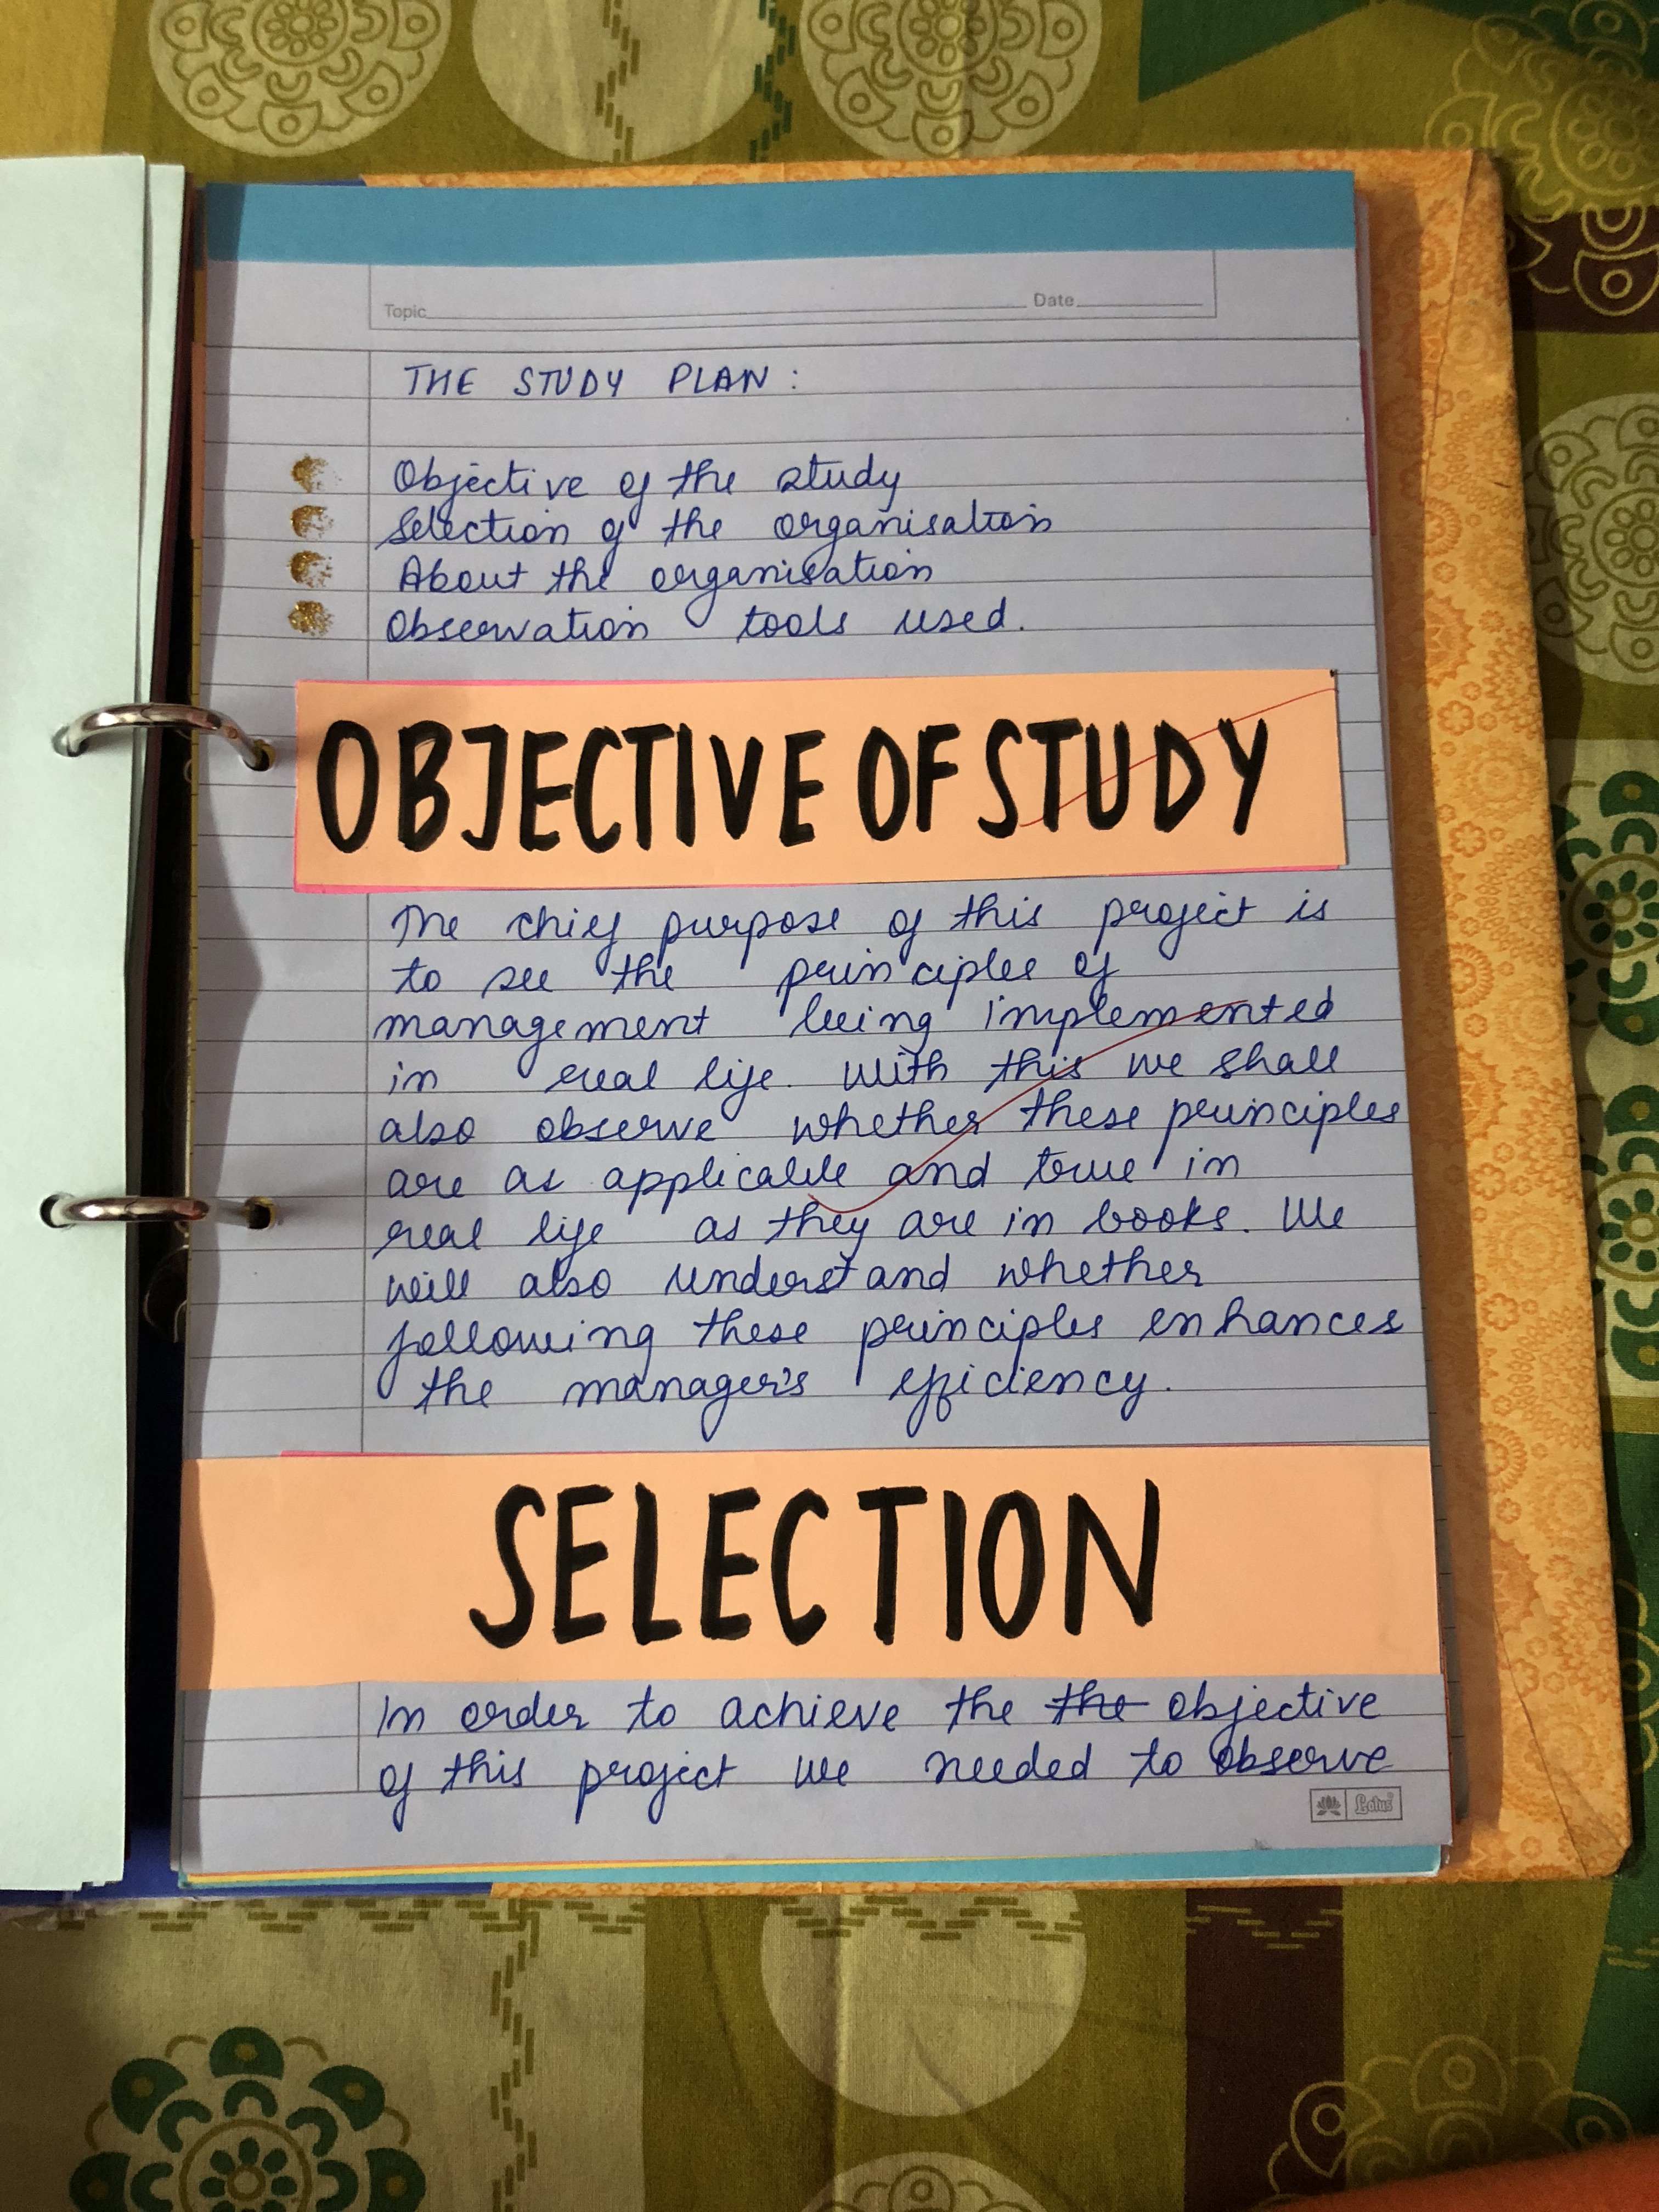 Topic Date
THE STUDY PLAN :
Objective of the study
Selection of the organisation
About the organisation
Observation tools used.
OBJECTIVE OF STUDY
The chief purpose of this project is
to see the principles of
management being implemented
in real life. With this we shall
also observe whether these principles
are as applicable and true in
real life as they are in books. We
will also understand whether
following these principles enhances
the manager's efficiency.
SELECTION
In order to achieve the the objective
of this project we needed to observe
Lotus